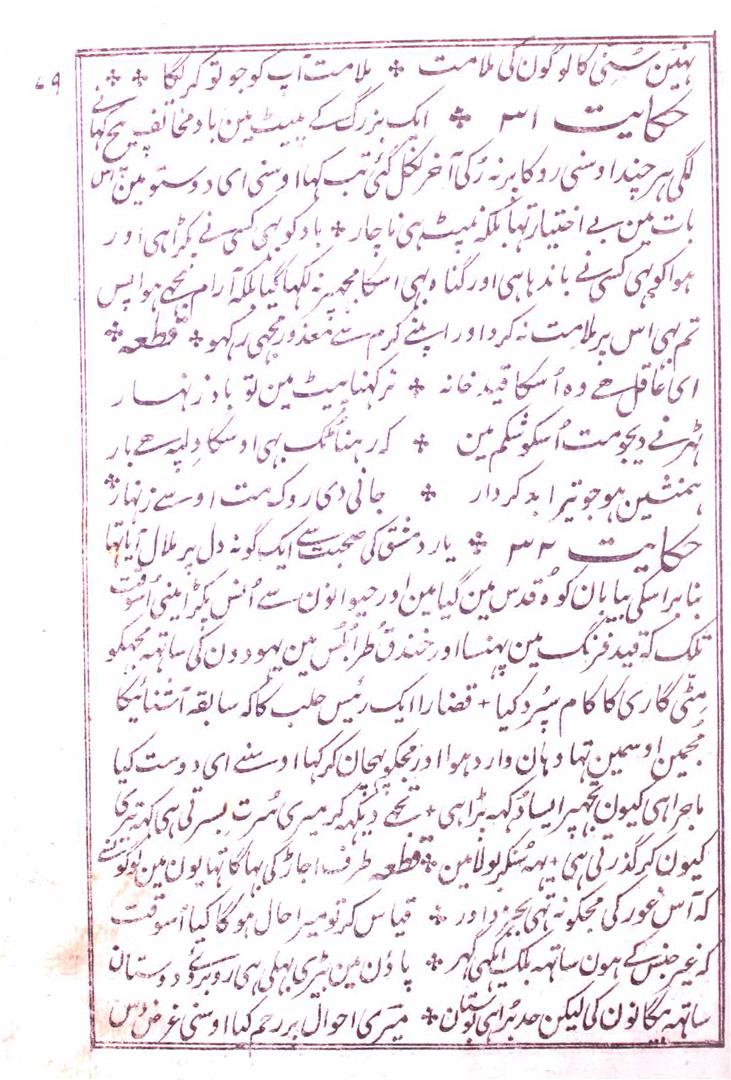 ۷۹
نہین سُنِی کا لوگون کی ملامت ٭ ملامت آپ کو جو تو کرلگا ٭ ٭
حکایت ۳۱ ٭ ایک بزرگ کے پیٹ مین باد مخالف پیچ کہانے
لگی ہر چند اوسنی روکا پر نہ رُکی آخر نکل گئی تب کہا اوسنی ای دوستو مین اس
بات مین بے اختیار تہا بلکہ نپٹ ہی ناچار ٭ باد کو بہی کسی نے پکڑا ہی اور
ہوا کو بہی کسی نے باندہا ہی اور گناہ بہی اسکا مجہپر نہ لکہا گیا بلکہ آرام مجہے ہوا پس
تم بہی اس پر ملامت نہ کرو اور اپنے کرم سے معذور مجہی رکہو ٭ قطعہ ٭
ای عاقل ہے وہ اُسکا قید خانہ ٭ نرکہنا پیٹ مین تو باد زنہار
ٹہرنے دیجو مت اُسکو شکم مین ٭ کہ رہنا ٹک بہی اوسکا دلپہ ہے بار
ہمنشین ہو جو تیرا بد کردار ٭ جانی دی روک مت اوسے زنہار ٭
حکایت ۳۲ ٭ یار دمشق کی صحبت سے ایک گونہ دل پر ملال آیا تہا
بنابر اسکی بیابان کوہ قدس مین گیا مین اور حیوانون سے اُنس پکڑا مینی اُسوقت
تلک کہ قید فرنگ مین پہنسا اور خندق طرابلُس مین یہودون کی ساتہہ مجہکو
مِٹّی گاری کا کام سپرد کیا + قضارا ایک رئیس حلب کا کہ سابقہ آشنائیکا
مُجہمین اوسمین تہا وہان وارد ہوا اور مجکو پہچان کر کہا اوسنے ای دوست کیا
ماجرا ہی کیون تجہپر ایسا دُکہہ پڑا ہی + تجہے دیکہہ کر میری سُرت بسرتی ہی کہہ تیری
کیون کر گذرتی ہی + یہہ سُنکر بولا مین ٭ قطعہ طرف اجاڑ کی بہاگا تہا یون مین لوگو نسے
کہ آس غور کی مجکو نہ تہی بجز داور ٭ قیاس کر تو میرا حال ہوگا کیا اُسوقت
کہ غیر جنس کے ہون ساتہہ بلک ایکہی گہر ٭ پاؤن مین بیڑی بہلی ہی روبروئے دوستان
ساتہہ بیگانون کی لیکن حد بُرا ہی بوستان ٭ میری احوال پر رحم کیا اوسنی غرض دس